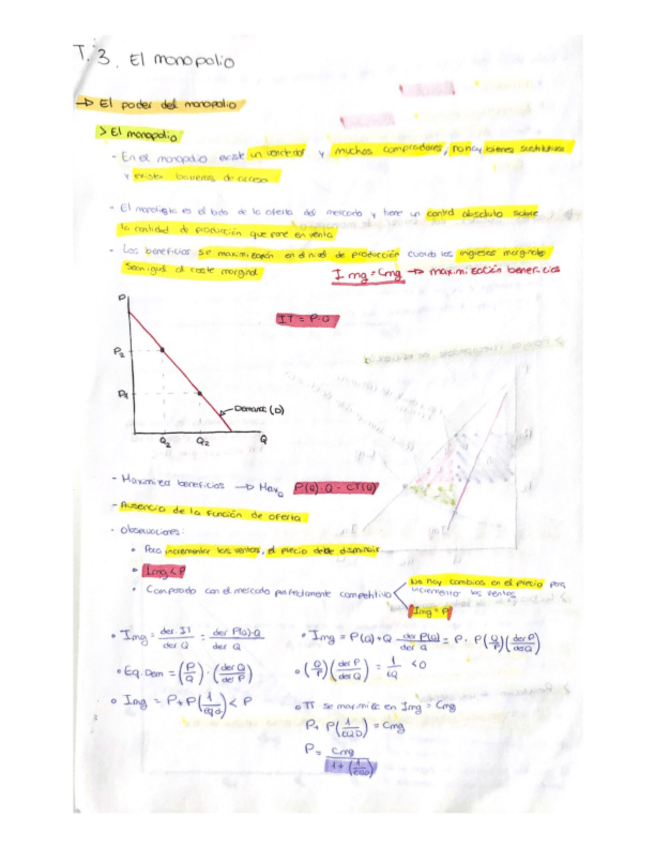 T.3. El monopolio
→ El poder del monopolio
> El monopolio
- En el monopolio existe un vendedor y muchos compradores, no hay bienes sustitutivos
y existen barreras de acceso
- El monopolista es el lado de la oferta del mercado y tiene un control absoluto sobre
la cantidad de producción que pone en venta
- Los beneficios se maximizan en el nivel de producción cuando los ingresos marginales
sean igual al coste marginal
Img = Cmg → maximización beneficios
P
IT = P·Q
P2
P1
Demanda (D)
Q2
Q2
Q
- Maximizar beneficios → MaxQ P(Q)·Q - CT(Q)
- Ausencia de la función de oferta
- Observaciones:
• Para incrementar las ventas, el precio debe disminuir
• Img < P
• Comparado con el mercado perfectamente competitivo
No hay cambios en el precio para
incrementar las ventas
Img = P
• Img = der IT / der Q = der P(Q)·Q / der Q
• Img = P(Q) + Q der P(Q) / der Q = P + P(Q/P)(der P / der Q)
• Eq.Dem = (P/Q)·(der Q / der P)
• (Q/P)(der P / der Q) = 1/EQ < 0
• Img = P + P(1/EQD) < P
• π se maximiza en Img = Cmg
P + P(1/EQD) = Cmg
P = Cmg / 1 + (1/EQD)